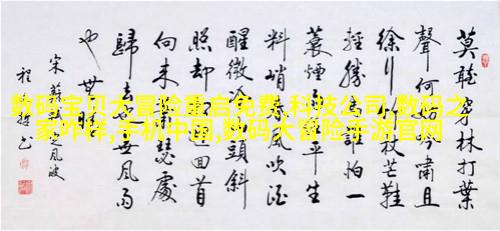 莫聽穿林打葉
聲何妨吟嘯且
徐行竹杖芒鞋
輕勝馬誰怕一
蓑煙雨任平生
料峭春風吹酒
醒微冷山頭斜
照却相迎回首
向來蕭瑟處
歸去也無風雨
也無晴
宋蘇軾定風波
程
数码宝贝大冒险重启免费,科技公司,数码之
家咋样,手机中国,数码大冒险手游官网